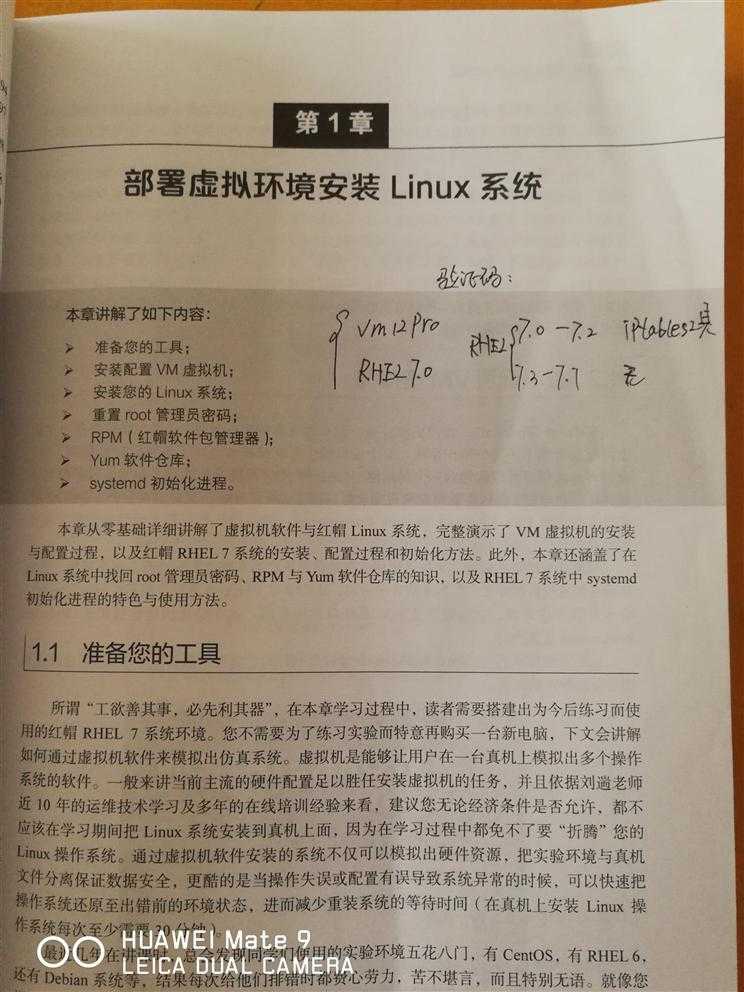 第1章
部署虚拟环境安装 Linux 系统
验证码：
本章讲解了如下内容：
➢ 准备您的工具；
➢ 安装配置 VM 虚拟机；
➢ 安装您的 Linux 系统；
➢ 重置 root 管理员密码；
➢ RPM（红帽软件包管理器）；
➢ Yum 软件仓库；
➢ systemd 初始化进程。
{ Vm12Pro
RHEL7.0
RHEL { 7.0-7.2 iptables工具
7.3-7.7 无
本章从零基础详细讲解了虚拟机软件与红帽 Linux 系统，完整演示了 VM 虚拟机的安装
与配置过程，以及红帽 RHEL 7 系统的安装、配置过程和初始化方法。此外，本章还涵盖了在
Linux 系统中找回 root 管理员密码、RPM 与 Yum 软件仓库的知识，以及 RHEL 7 系统中 systemd
初始化进程的特色与使用方法。
1.1 准备您的工具
所谓“工欲善其事，必先利其器”，在本章学习过程中，读者需要搭建出为今后练习而使
用的红帽 RHEL 7 系统环境。您不需要为了练习实验而特意再购买一台新电脑，下文会讲解
如何通过虚拟机软件来模拟出仿真系统。虚拟机是能够让用户在一台真机上模拟出多个操作
系统的软件。一般来讲当前主流的硬件配置足以胜任安装虚拟机的任务，并且依据刘遄老师
近 10 年的运维技术学习及多年的在线培训经验来看，建议您无论经济条件是否允许，都不
应该在学习期间把 Linux 系统安装到真机上面，因为在学习过程中都免不了要“折腾”您的
Linux 操作系统。通过虚拟机软件安装的系统不仅可以模拟出硬件资源，把实验环境与真机
文件分离保证数据安全，更酷的是当操作失误或配置有误导致系统异常的时候，可以快速把
操作系统还原至出错前的环境状态，进而减少重装系统的等待时间（在真机上安装 Linux 操
作系统每次至少需要 30 分钟）。
最近几年在讲课时，总会发现同学们使用的实验环境五花八门，有 CentOS，有 RHEL 6，
还有 Debian 系统等，结果每次给他们排错时都费心劳力，苦不堪言，而且特别无语。就像您
HUAWEI Mate 9
LEICA DUAL CAMERA